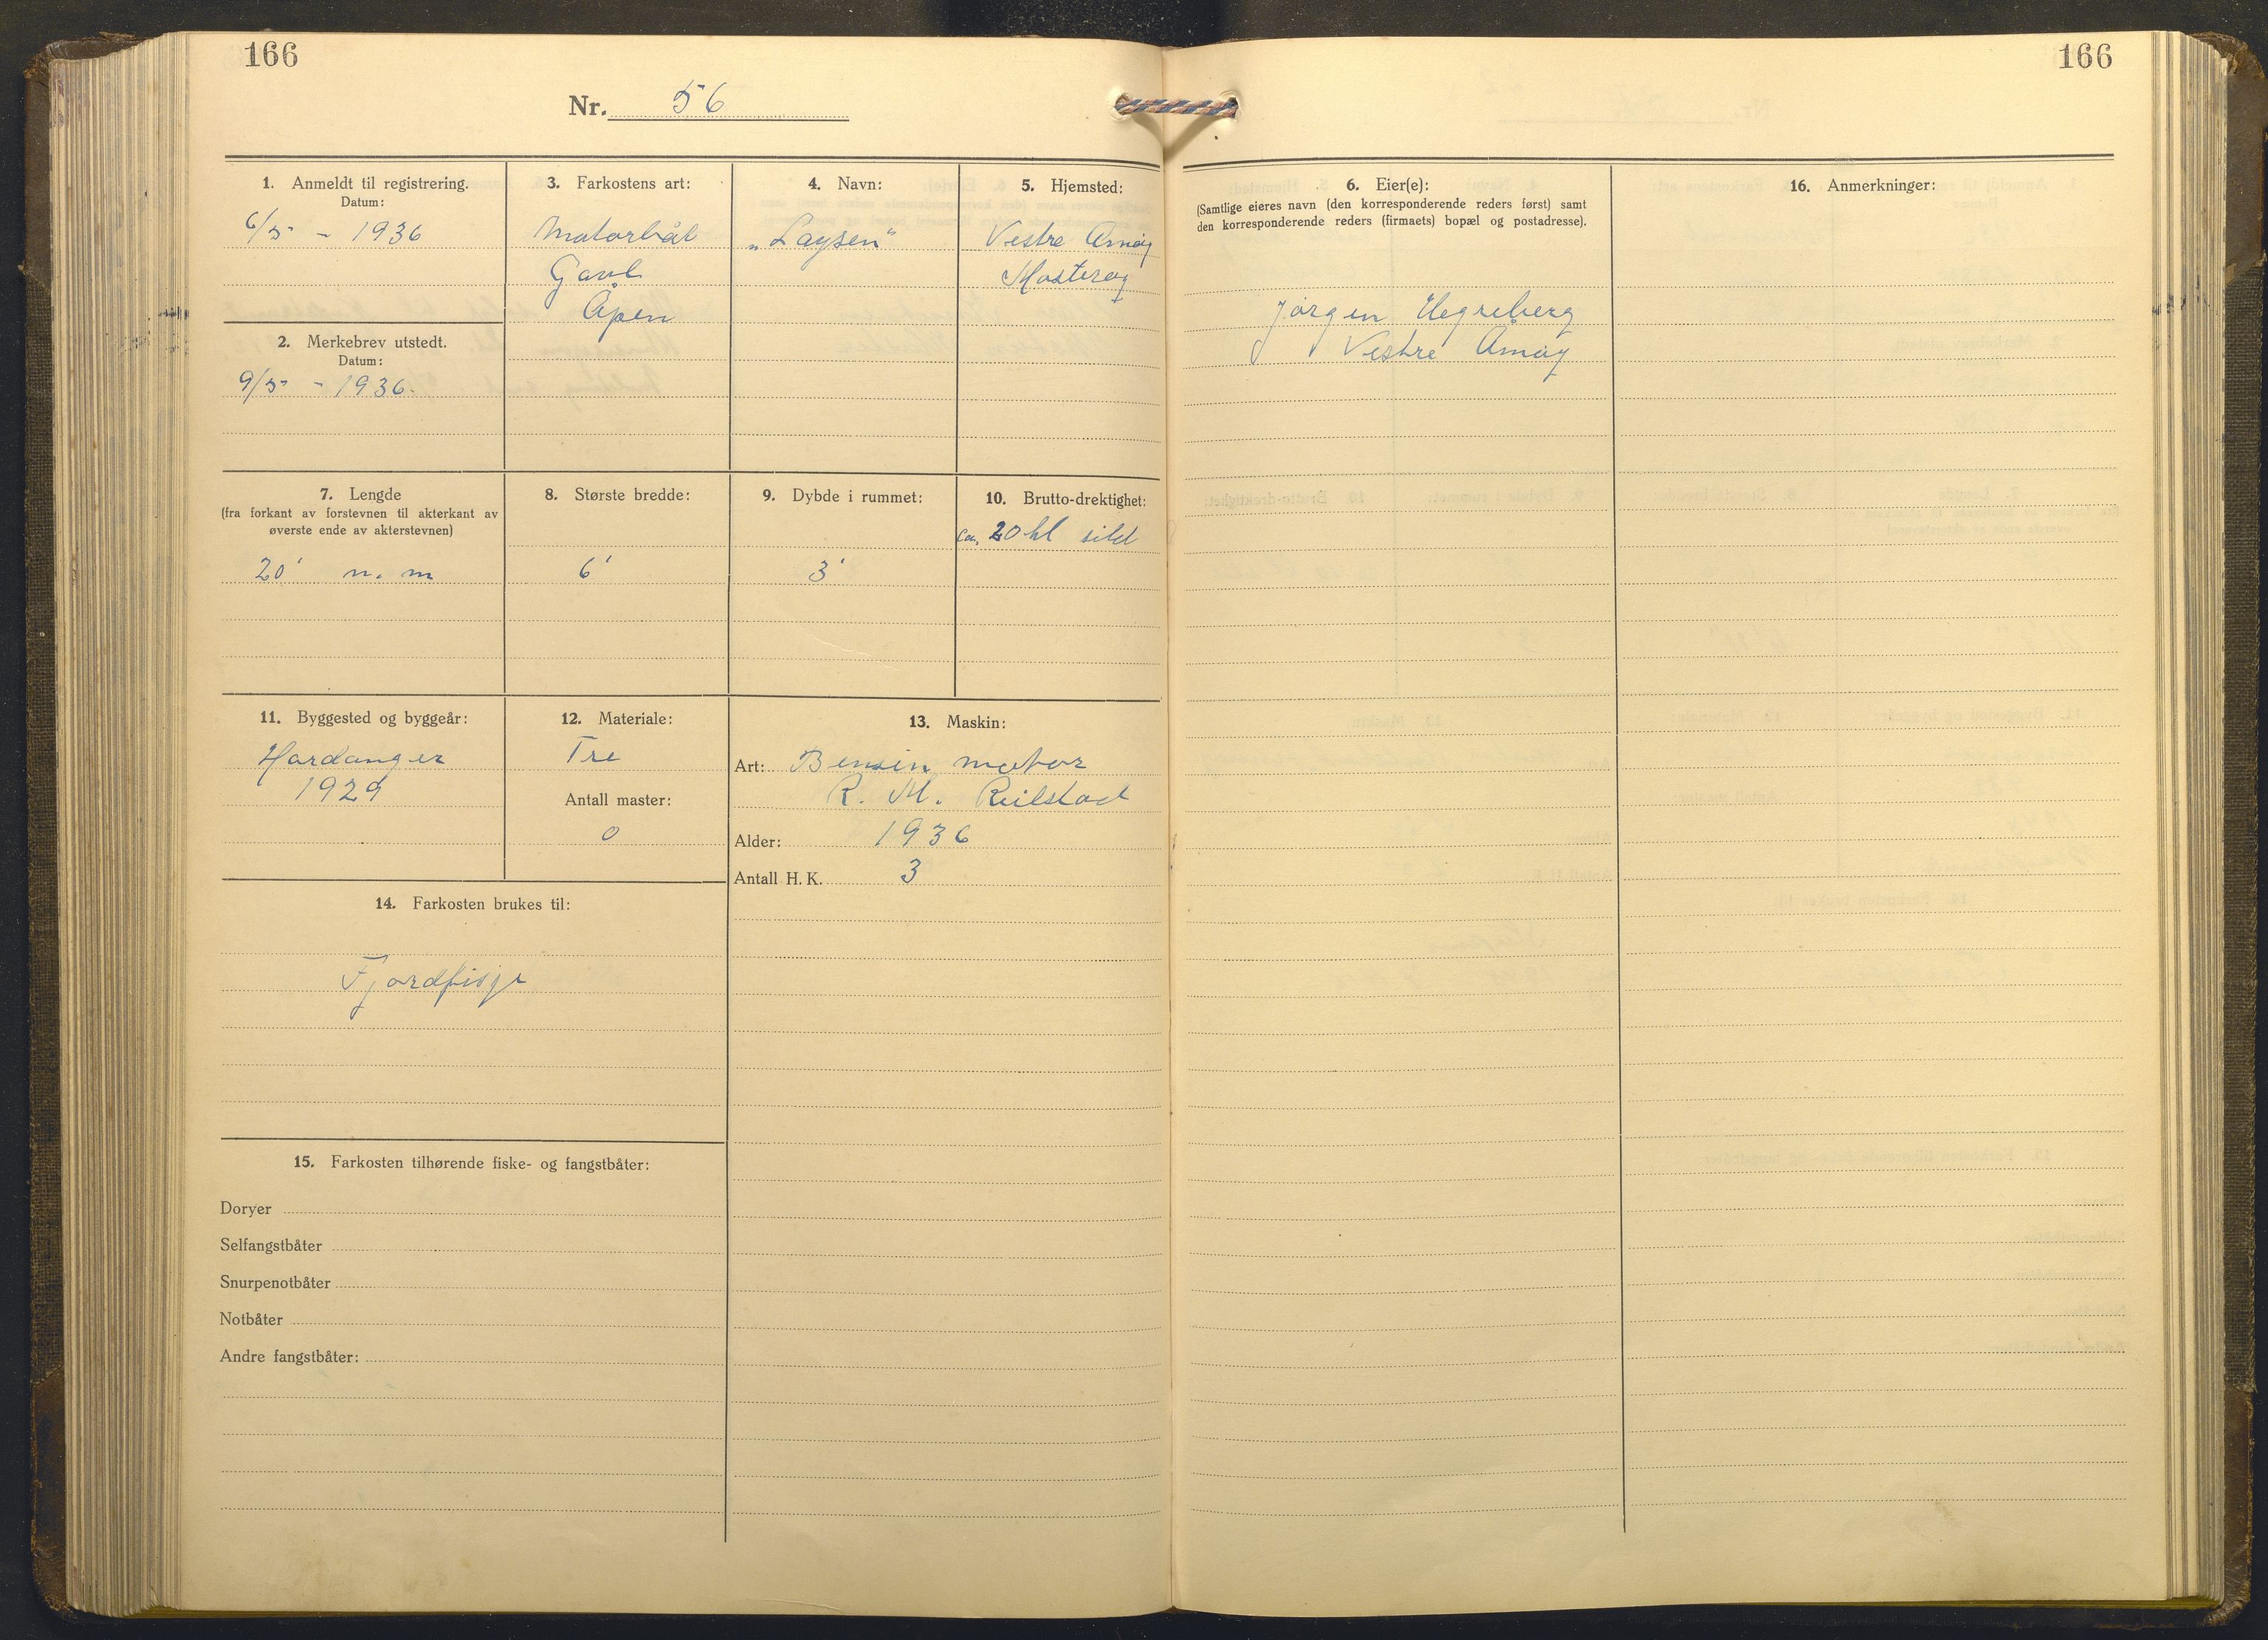 166
166
Nr. 56
1. Anmeldt til registrering.
Datum:
6/5 - 1936
2. Merkebrev utstedt.
Datum:
9/5 - 1936.
3. Farkostens art:
Motorbåt
Gavl
Åpen
4. Navn:
„Laysen"
5. Hjemsted:
Vestre Amøy
Mosterøy
6. Eier(e):
(Samtlige eieres navn (den korresponderende reders først) samt
den korresponderende reders (firmaets) bopæl og postadresse).
Jørgen Hegreberg
Vestre Åmøy
16. Anmerkninger:
7. Lengde
(fra forkant av forstevnen til akterkant av
øverste ende av akterstevnen)
20' n. m
8. Største bredde:
6'
9. Dybde i rummet:
3'
10. Brutto-drektighet:
ca. 20 hl sild
11. Byggested og byggeår:
Hardanger
1929
12. Materiale:
Tre
Antall master:
0
13. Maskin:
Art: Bensin motor
R. M.
Alder: 1936
Antall H. K. 3
14. Farkosten brukes til:
Fjordfisje
15. Farkosten tilhørende fiske- og fangstbåter:
Doryer
Selfangstbåter
Snurpenotbåter
Notbåter
Andre fangstbåter: